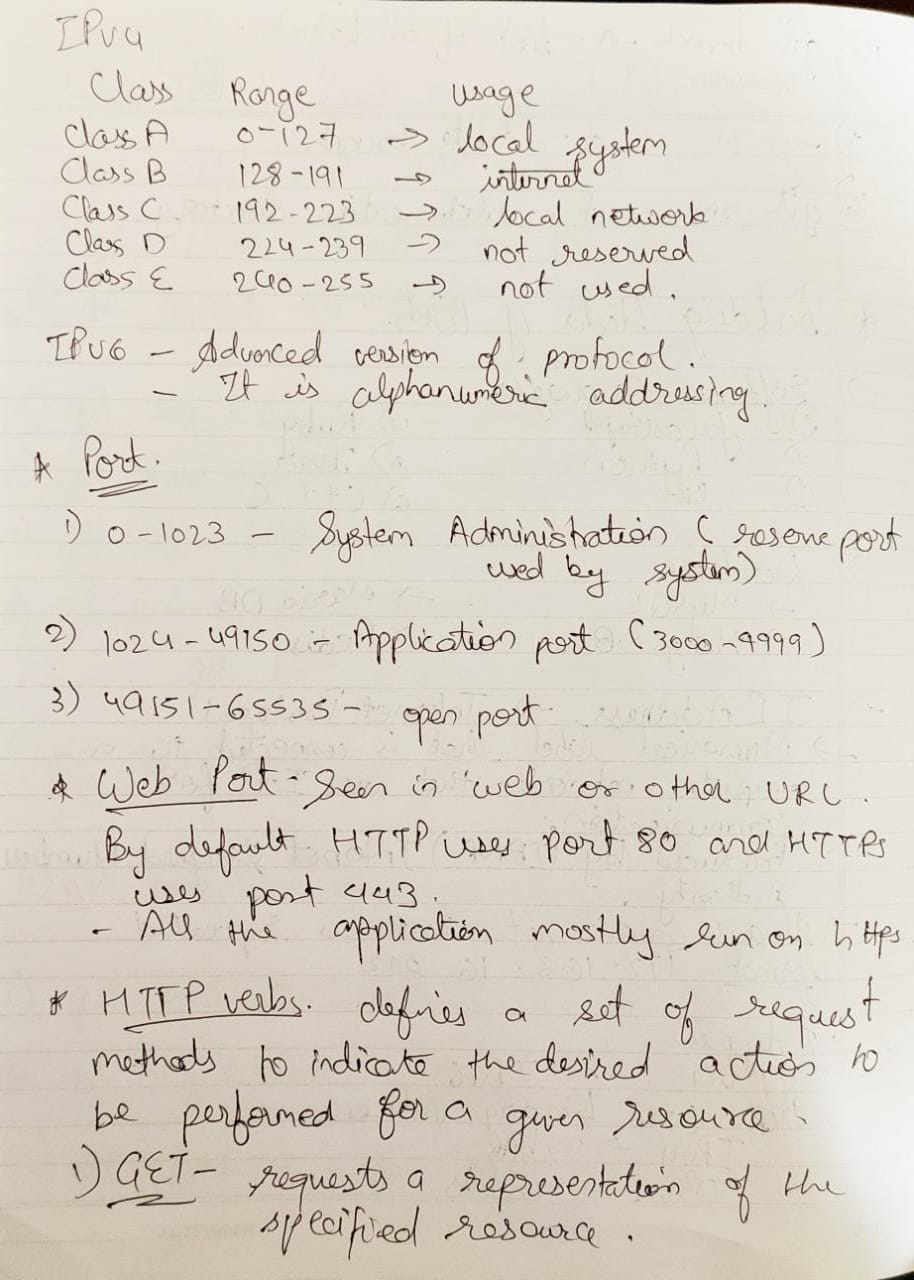 IPv4
Class Range usage
Class A 0-127 → local system
Class B 128-191 → internet
Class C 192-223 → local network
Class D 224-239 → not reserved
Class E 240-255 → not used.
IPv6 - Advanced version of protocol.
- It is alphanumeric addressing.
* Port.
1) 0-1023 - System Administration (reserve port
used by system)
2) 1024-49150 - Application port (3000-9999)
3) 49151-65535 - open port.
* Web Port - Seen in web or other URL.
By default HTTP uses port 80 and HTTPs
uses port 443.
- All the application mostly run on https
* HTTP verbs. defines a set of request
methods to indicate the desired action to
be performed for a given resource.
1) GET - requests a representation of the
specified resource.